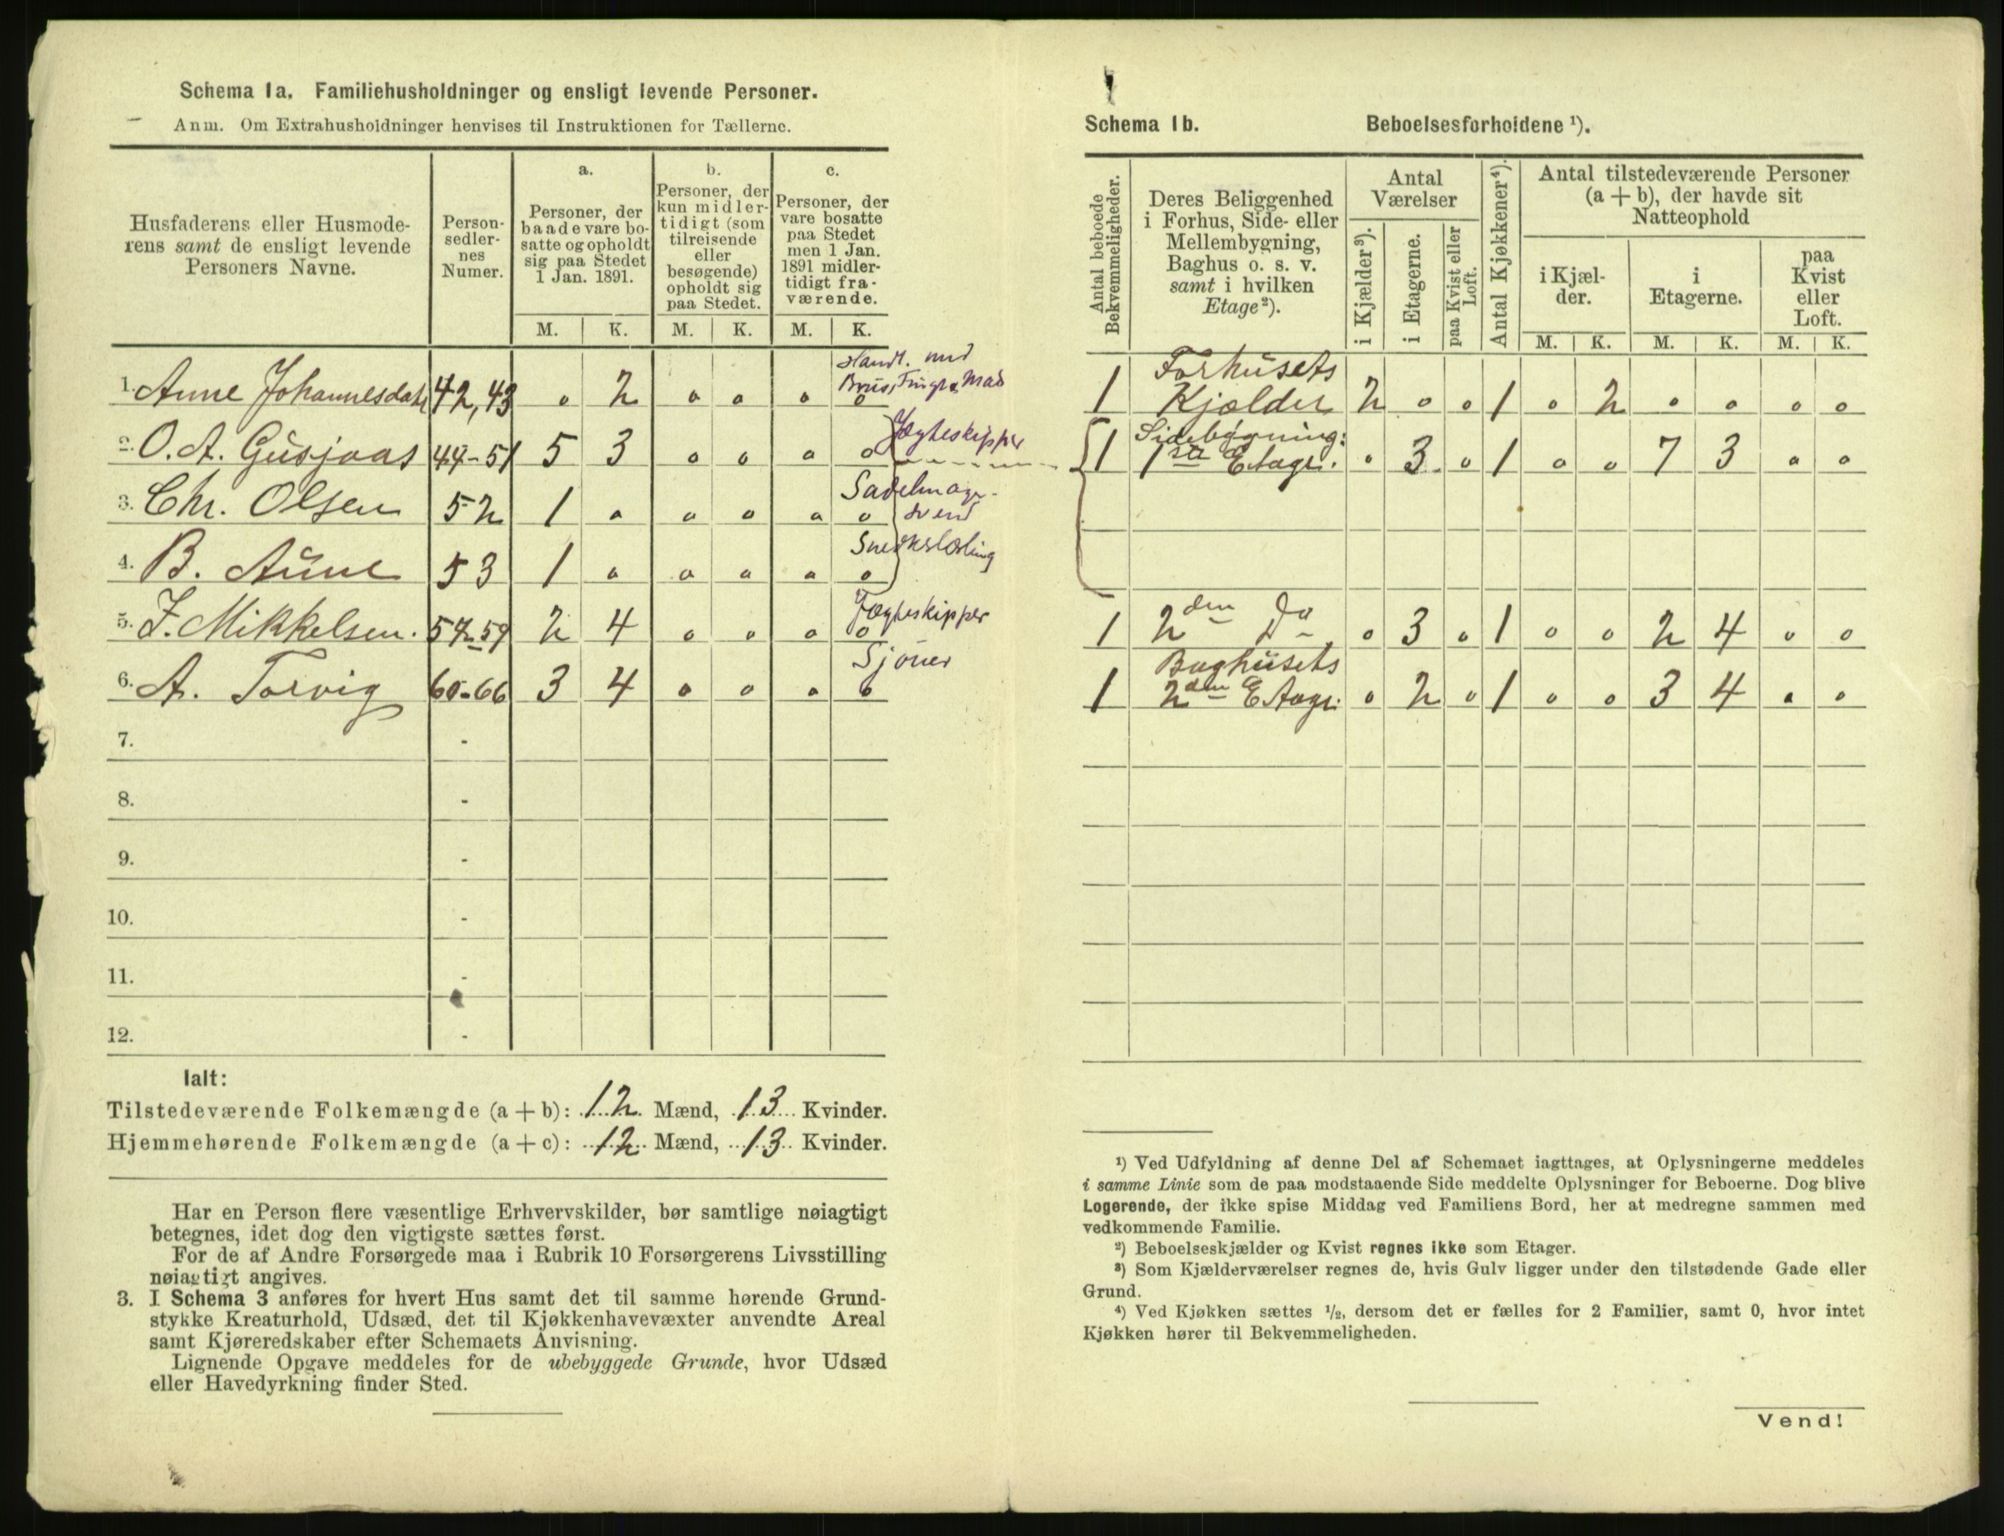 Schema 1a. Familiehusholdninger og ensligt levende Personer.
Anm. Om Extrahusholdninger henvises til Instruktionen for Tællerne.
Husfaderens eller Husmode-
rens samt de ensligt levende
Personers Navne.
Person-
sedler-
nes
Numer.
a.
Personer, der
baade vare bo-
satte og opholdt
sig paa Stedet
1 Jan. 1891.
b.
Personer, der
kun midler-
tidigt (som
tilreisende
eller
besøgende)
opholdt sig
paa Stedet.
c.
Personer, der
vare bosatte
paa Stedet
men 1 Jan.
1891 midler-
tidigt fra-
værende.
M. K. M. K. M. K.
Handl. med
1. Anne Johannesdatr 42, 43 0 2 0 0 0 0 Brus, Mad
2. O. A. Gusjaas 44-51 5 3 0 0 0 0 Jægteskipper
3. Chr. Olsen 52 1 0 0 0 0 0 Sadelmager-
svend
4. B. Aune 53 1 0 0 0 0 0
5. J. Mikkelsen. 54-59 2 4 0 0 0 0 Jægteskipper
6. A. Torvig 60-66 3 4 0 0 0 0 Sjouer
7. -
8. -
9. -
10. -
11. -
12. -
Ialt:
Tilstedeværende Folkemængde (a + b): 12 Mænd, 13 Kvinder.
Hjemmehørende Folkemængde (a + c): 12 Mænd, 13 Kvinder.
Har en Person flere væsentlige Erhvervskilder, bør samtlige nøiagtigt
betegnes, idet dog den vigtigste sættes først.
For de af Andre Forsørgede maa i Rubrik 10 Forsørgerens Livsstilling
nøiagtigt angives.
3. I Schema 3 anføres for hvert Hus samt det til samme hørende Grund-
stykke Kreaturhold, Udsæd, det til Kjøkkenhavevæxter anvendte Areal
samt Kjøreredskaber efter Schemaets Anvisning.
Lignende Opgave meddeles for de ubebyggede Grunde, hvor Udsæd
eller Havedyrkning finder Sted.
Schema 1b. Beboelsesforholdene ¹).
Antal beboede
Bekvemmeligheder.
Deres Beliggenhed
i Forhus, Side- eller
Mellembygning,
Baghus o. s. v.
samt i hvilken
Etage²).
Antal
Værelser
i Kjælder³).
i Etagerne.
paa Kvist eller
Loft.
Antal Kjøkkener⁴).
Antal tilstedeværende Personer
(a + b), der havde sit
Natteophold
i Kjæl-
der.
i
Etagerne.
paa
Kvist
eller
Loft.
M. K. M. K. M. K.
Forhusets
1 Kjælder 2 0 0 1 0 2 0 0 0 0
Sidebygning:
1 1ste Etage. 0 3 0 1 0 0 7 3 0 0
1 2den Do 0 3 0 1 0 0 2 4 0 0
Baghusets
1 2den Etage. 0 2 0 1 0 0 3 4 0 0
¹) Ved Udfyldning af denne Del af Schemaet iagttages, at Oplysningerne meddeles
i samme Linie som de paa modstaaende Side meddelte Oplysninger for Beboerne. Dog blive
Logerende, der ikke spise Middag ved Familiens Bord, her at medregne sammen med
vedkommende Familie.
²) Beboelseskjælder og Kvist regnes ikke som Etager.
³) Som Kjælderværelser regnes de, hvis Gulv ligger under den tilstødende Gade eller
Grund.
⁴) Ved Kjøkken sættes ½, dersom det er fælles for 2 Familier, samt 0, hvor intet
Kjøkken hører til Bekvemmeligheden.
Vend!